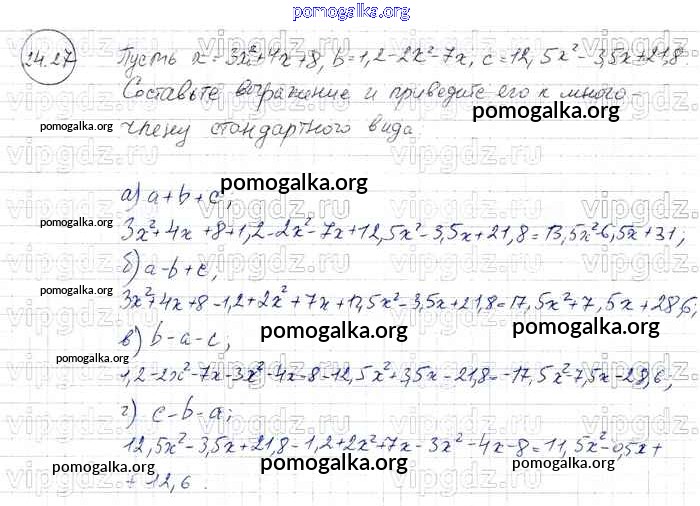 pomogalka.org
24.27 Пусть x = 3x²+4x+8, b=1,2-2x²-7x, c=12,5x²-3,5x+21,8
Составьте выражение и приведите его к много-
члену стандартного вида.
pomogalka.org
pomogalka.org
а) a+b+c;
pomogalka.org
pomogalka.org
3x²+4x+8+1,2-2x²-7x+12,5x²-3,5x+21,8=13,5x²-6,5x+31,
б) a-b+c,
pomogalka.org
3x²+4x+8-1,2+2x²+7x+12,5x²-3,5x+21,8=17,5x²+7,5x+28,6,
в) b-a-c;
pomogalka.org
pomogalka.org
pomogalka.org
1,2-2x²-7x-3x²-4x-8-12,5x²+3,5x-21,8=-17,5x²-7,5x-28,6,
г) c-b-a;
12,5x²-3,5x+21,8-1,2+2x²+7x-3x²-4x-8=11,5x²-0,5x+
pomogalka.org
pomogalka.org
pomogalka.org
+12,6.